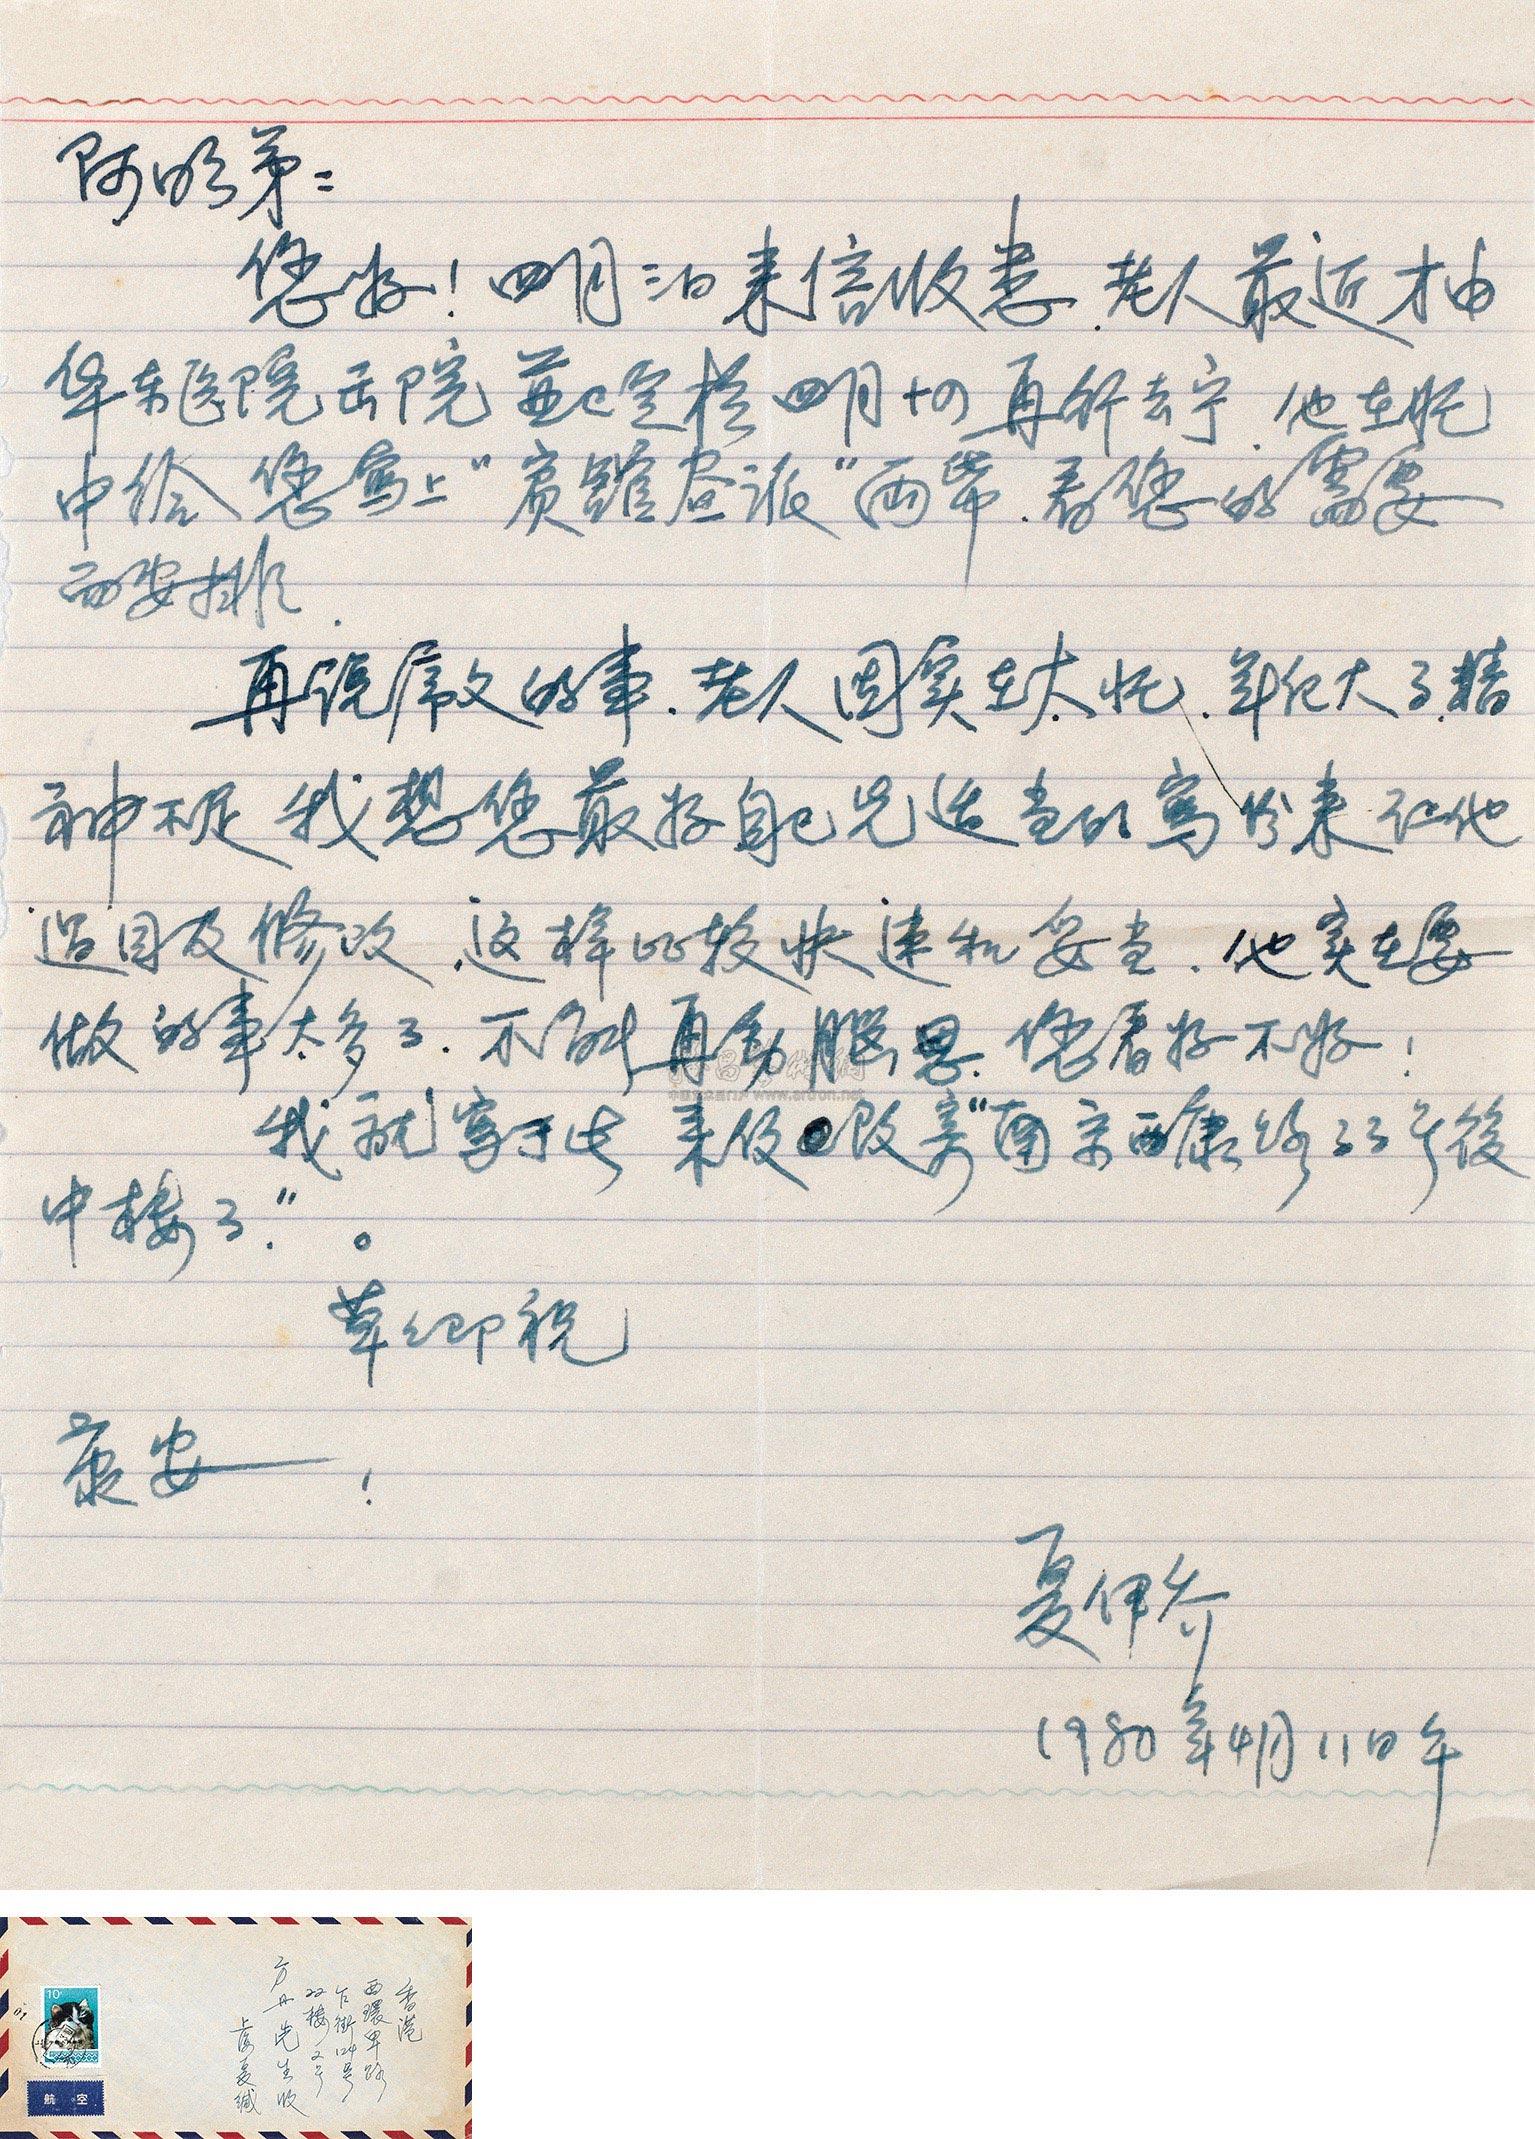 阿明弟：
您好！四月三日来信收悉.老人最近才由
华东医院出院並已定於四月十四再所去宁.他在忙
中给您写上"宾虹画派"两幣.看您的需要
而安排.
再说序文的事.老人因实在太忙.年纪大了.精
神不足我想您最好自己先适当的写份来让他
过目及修改.这样比较快速和妥当.他实在要
做的事太多了.不能再動腦思.您看好不好！
我就写于此来信改寄"南京西康路33号後
中楼了."。
草々即祝
康安！
夏伊乔
1980年4月11日午
香港
西環卑路
乍街124号
22楼2号
方丹先生收
上海夏緘
10
航空
www.artron.net